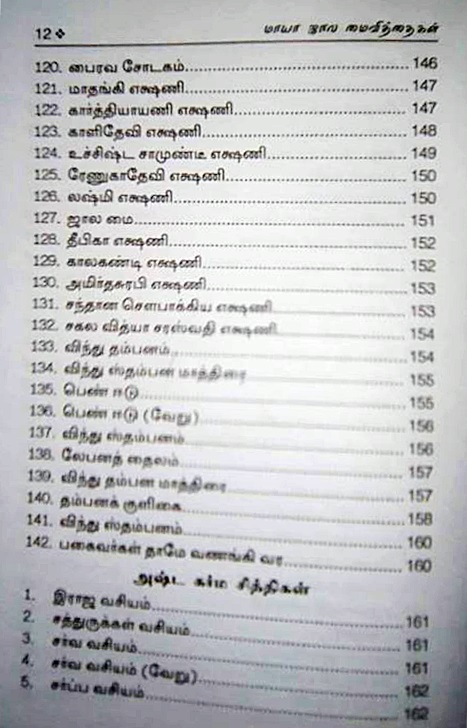 12 ❖ மாயா ஜால மைவித்தைகள்
120. பைரவ சோடகம் 146
121. மாதங்கி எக்ஷணி 147
122. கார்த்தியாயணி எக்ஷணி 147
123. காளிதேவி எக்ஷணி 148
124. உச்சிஷ்ட சாமுண்டீ எக்ஷணி 149
125. ரேணுகாதேவி எக்ஷணி 150
126. லஷ்மி எக்ஷணி 150
127. ஜால மை 151
128. தீபிகா எக்ஷணி 152
129. காலகண்டி எக்ஷணி 152
130. அமிர்தசுரபி எக்ஷணி 153
131. சந்தான சௌபாக்கிய எக்ஷணி 153
132. சகல வித்யா சரஸ்வதி எக்ஷணி 154
133. விந்து தம்பனம் 154
134. விந்து ஸ்தம்பன மாத்திரை 155
135. பெண் ஈடு 155
136. பெண் ஈடு (வேறு) 156
137. விந்து ஸ்தம்பனம் 156
138. லேபனத் தைலம் 157
139. விந்து தம்பன மாத்திரை 157
140. தம்பனக் குளிகை 158
141. விந்து ஸ்தம்பனம் 160
142. பகைவர்கள் தாமே வணங்கி வர 160
அஷ்ட கர்ம சித்திகள்
1. இராஜ வசியம் 161
2. சத்துருக்கள் வசியம் 161
3. சர்வ வசியம் 161
4. சர்வ வசியம் (வேறு) 162
5. சர்ப்ப வசியம் 162